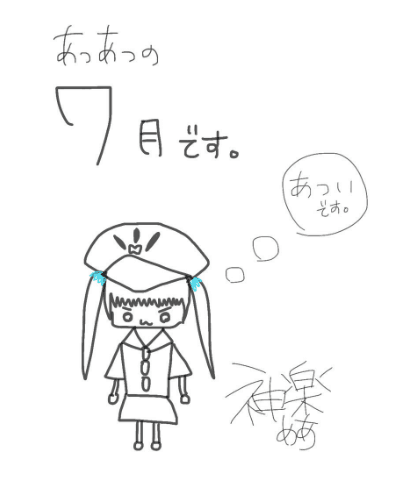 あつあつの
7月です。
あつい
です。
神楽
めあ